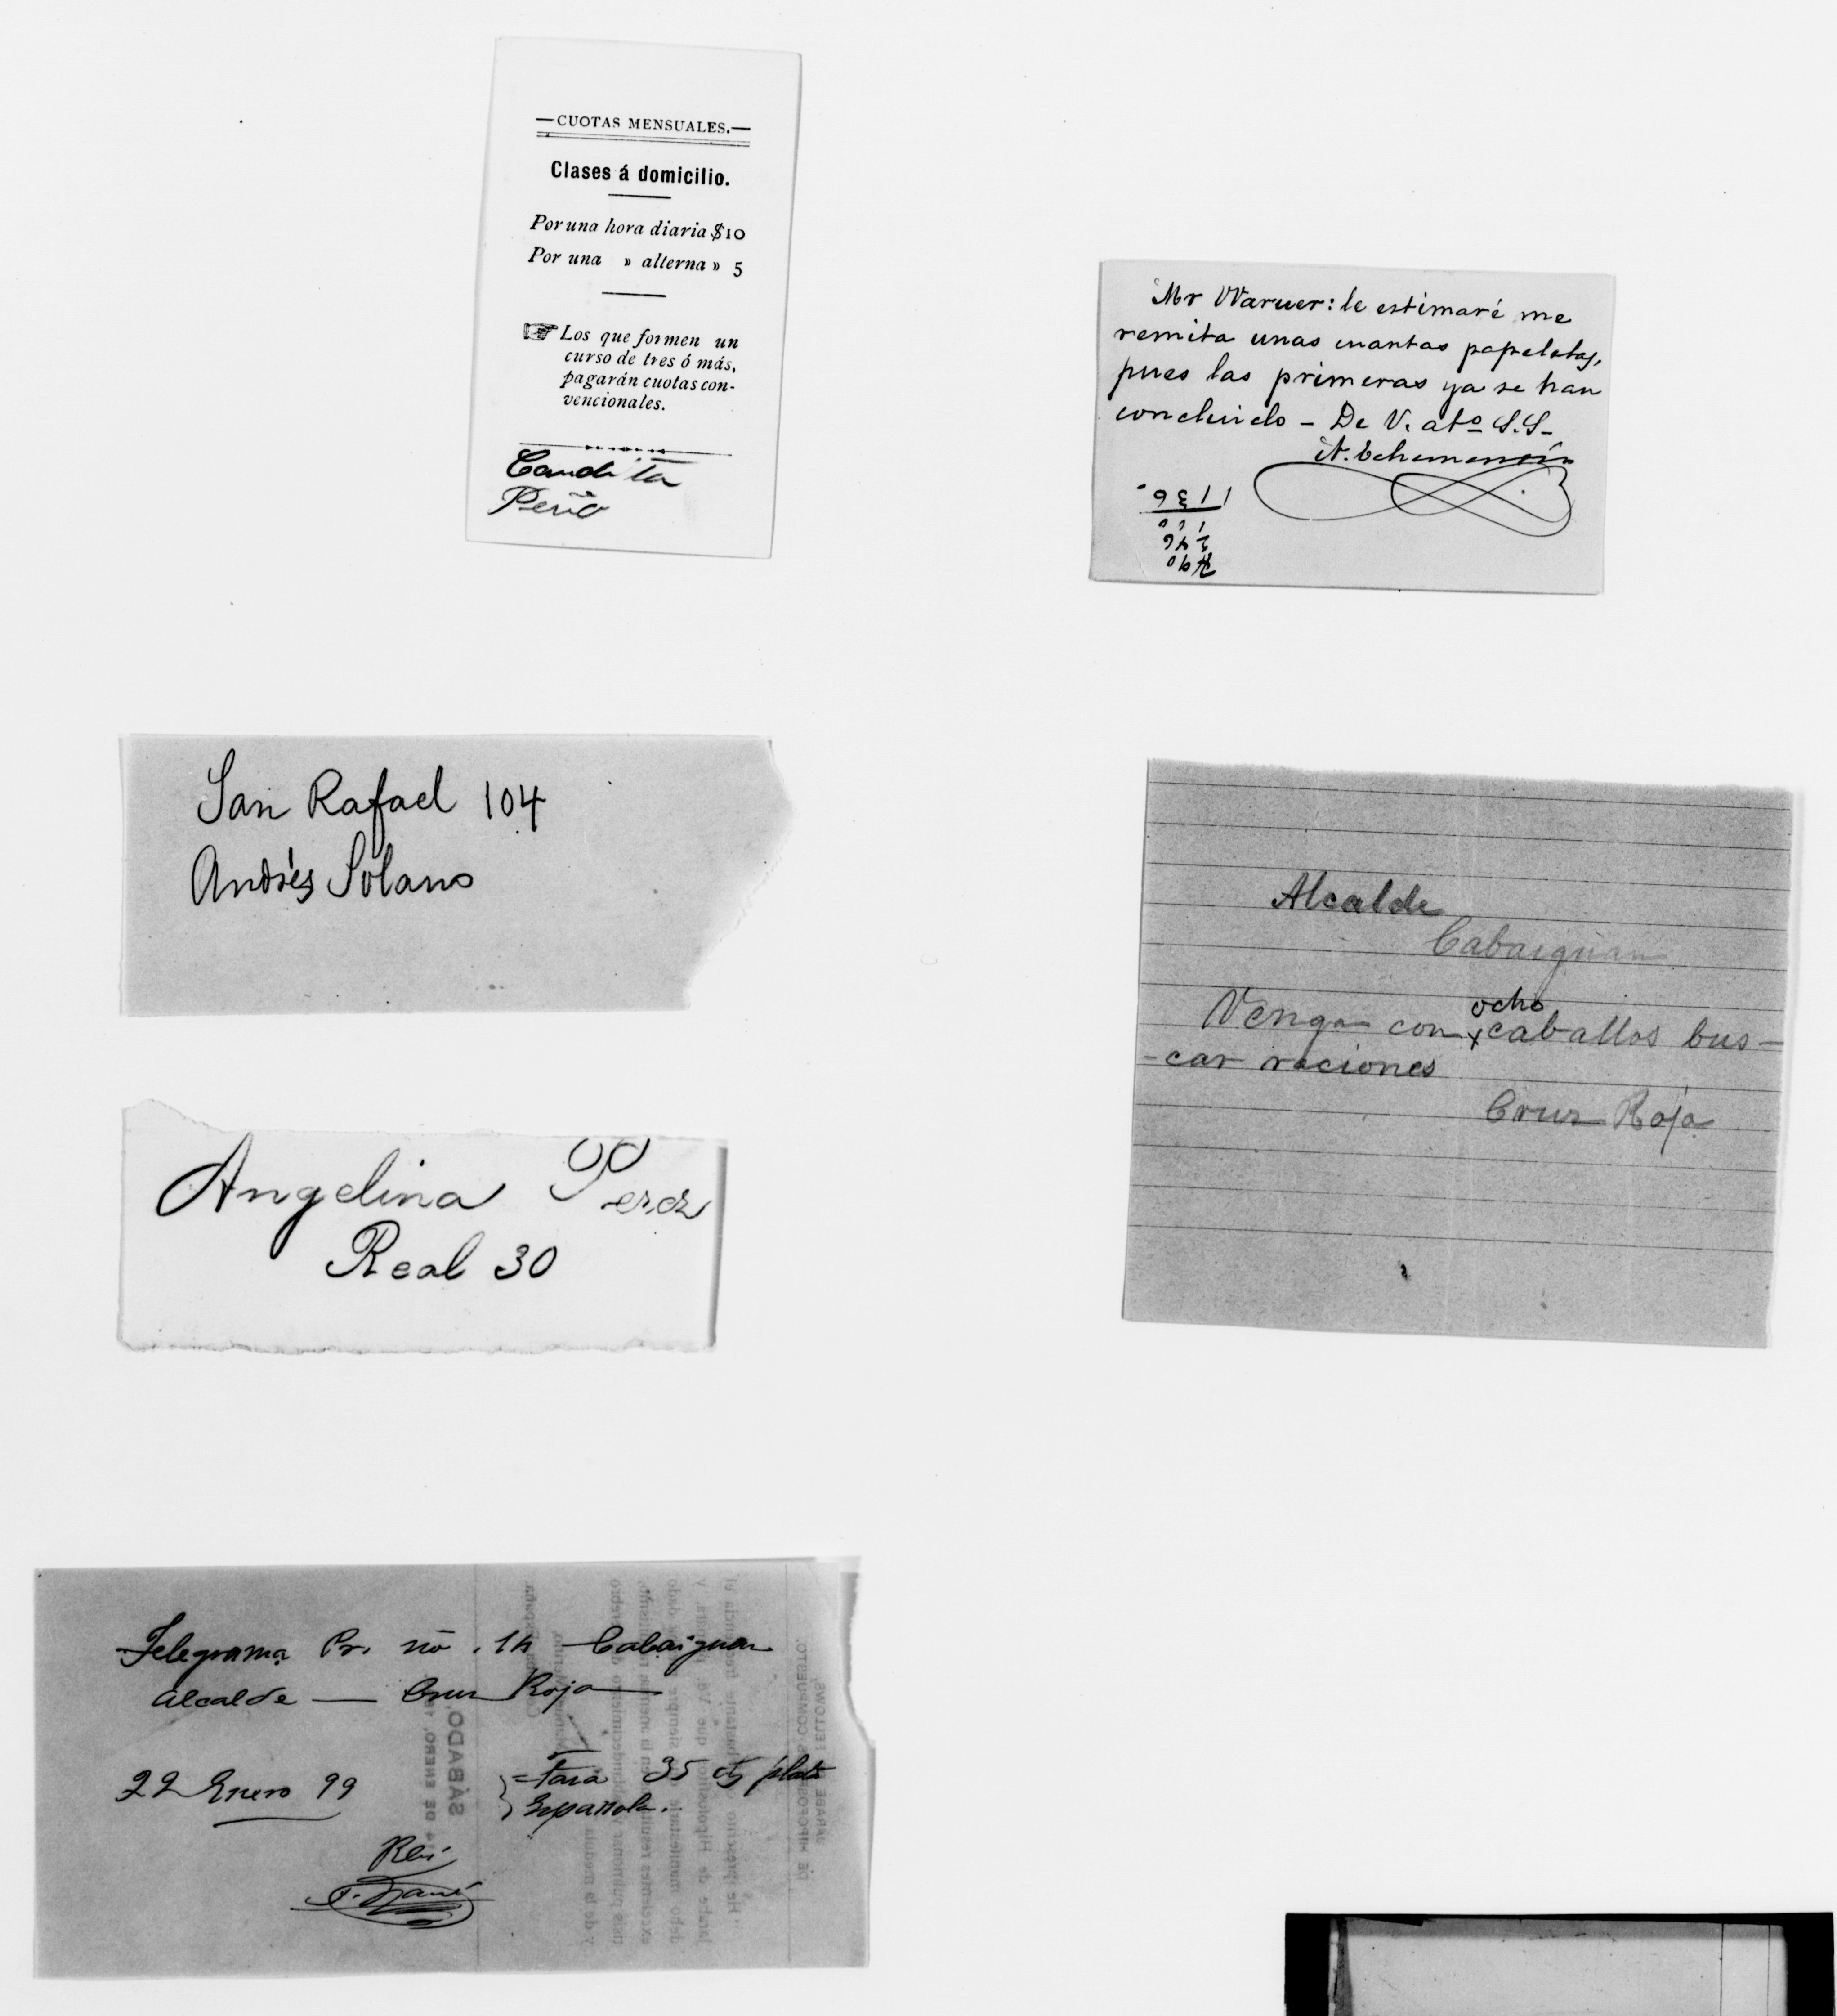 —CUOTAS MENSUALES.—
Clases á domicilio.
Por una hora diaria $10
Por una » alterna » 5
Los que formen un
curso de tres ó más,
pagarán cuotas con-
vencionales.
Candita
Peña
Mr Warner: le estimaré me
remita unas cuantas papeletas,
pues las primeras ya se han
concluido – De V. atº S.S–
1136
San Rafael 104
Andrés Solano
Alcalde
Cabaiguan
ocho
Venga con caballos bus–
–car raciones
Cruz Roja
Angelina Perez
Real 30
Telegrama Pr. nº 14 Cabaiguan
Alcalde — Cruz Roja
22 Enero 99
Tasa 35 cts plata
Española.
SÁBADO
DE ENERO,
JARABE FELLOWS
DE HIPOFOSFITOS COMPUESTO.